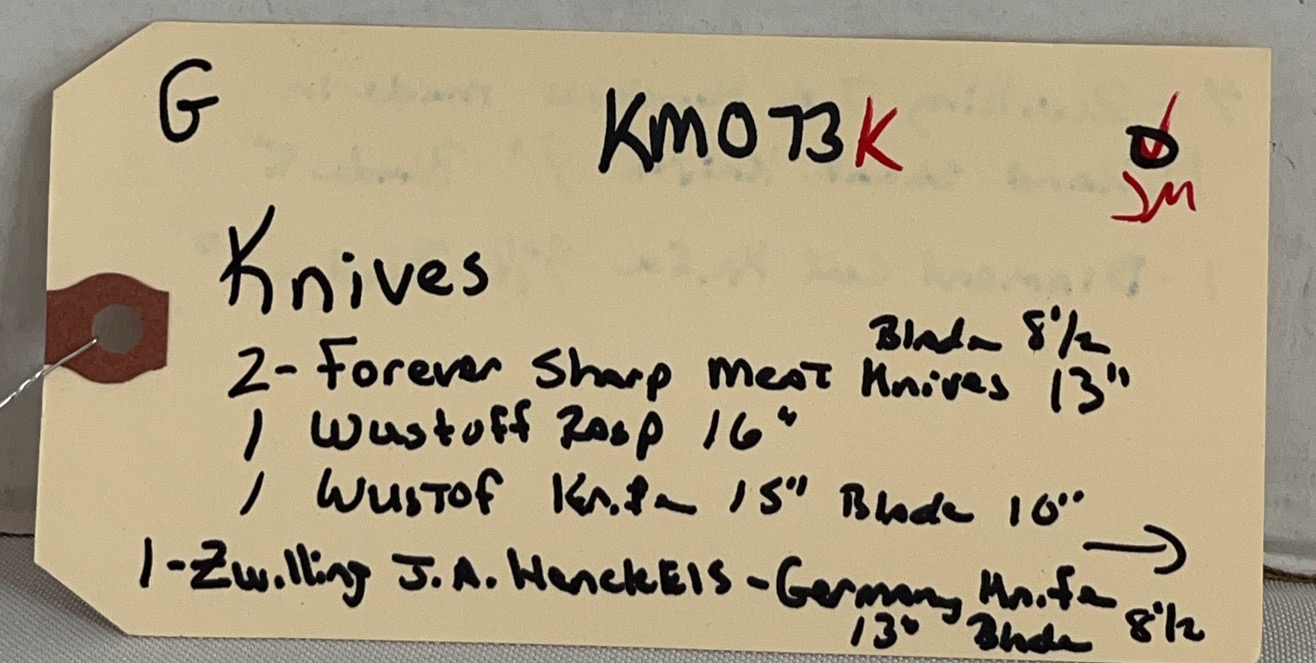 G
KM073K
JM
Knives
Blade 8 1/2
2- Forever Sharp Meat Knives 13"
1 Wustoff Rasp 16"
1 Wustof Knife 15" Blade 10"
1-Zwilling J.A. Henckels - Germany Knife
13" Blade 8 1/2